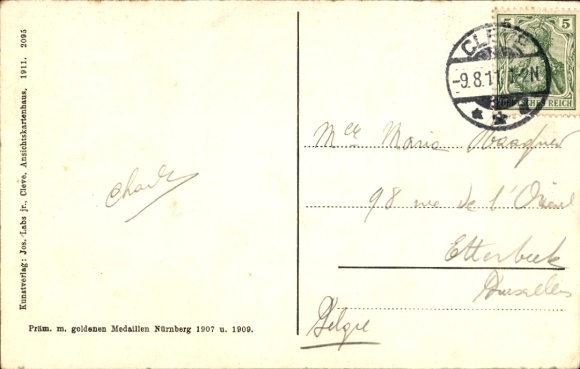 Kunstverlag: Jos. Labs jr., Cleve, Ansichtskartenhaus. 1911. 2095
Charles
Präm. m. goldenen Medaillen Nürnberg 1907 u. 1909.
CLEVE
-9.8.11. 1-2N
5 5
DEUTSCHES REICH
Mlle Maria
98 rue de l'Orient
Etterbeek
Bruxelles
Belgie